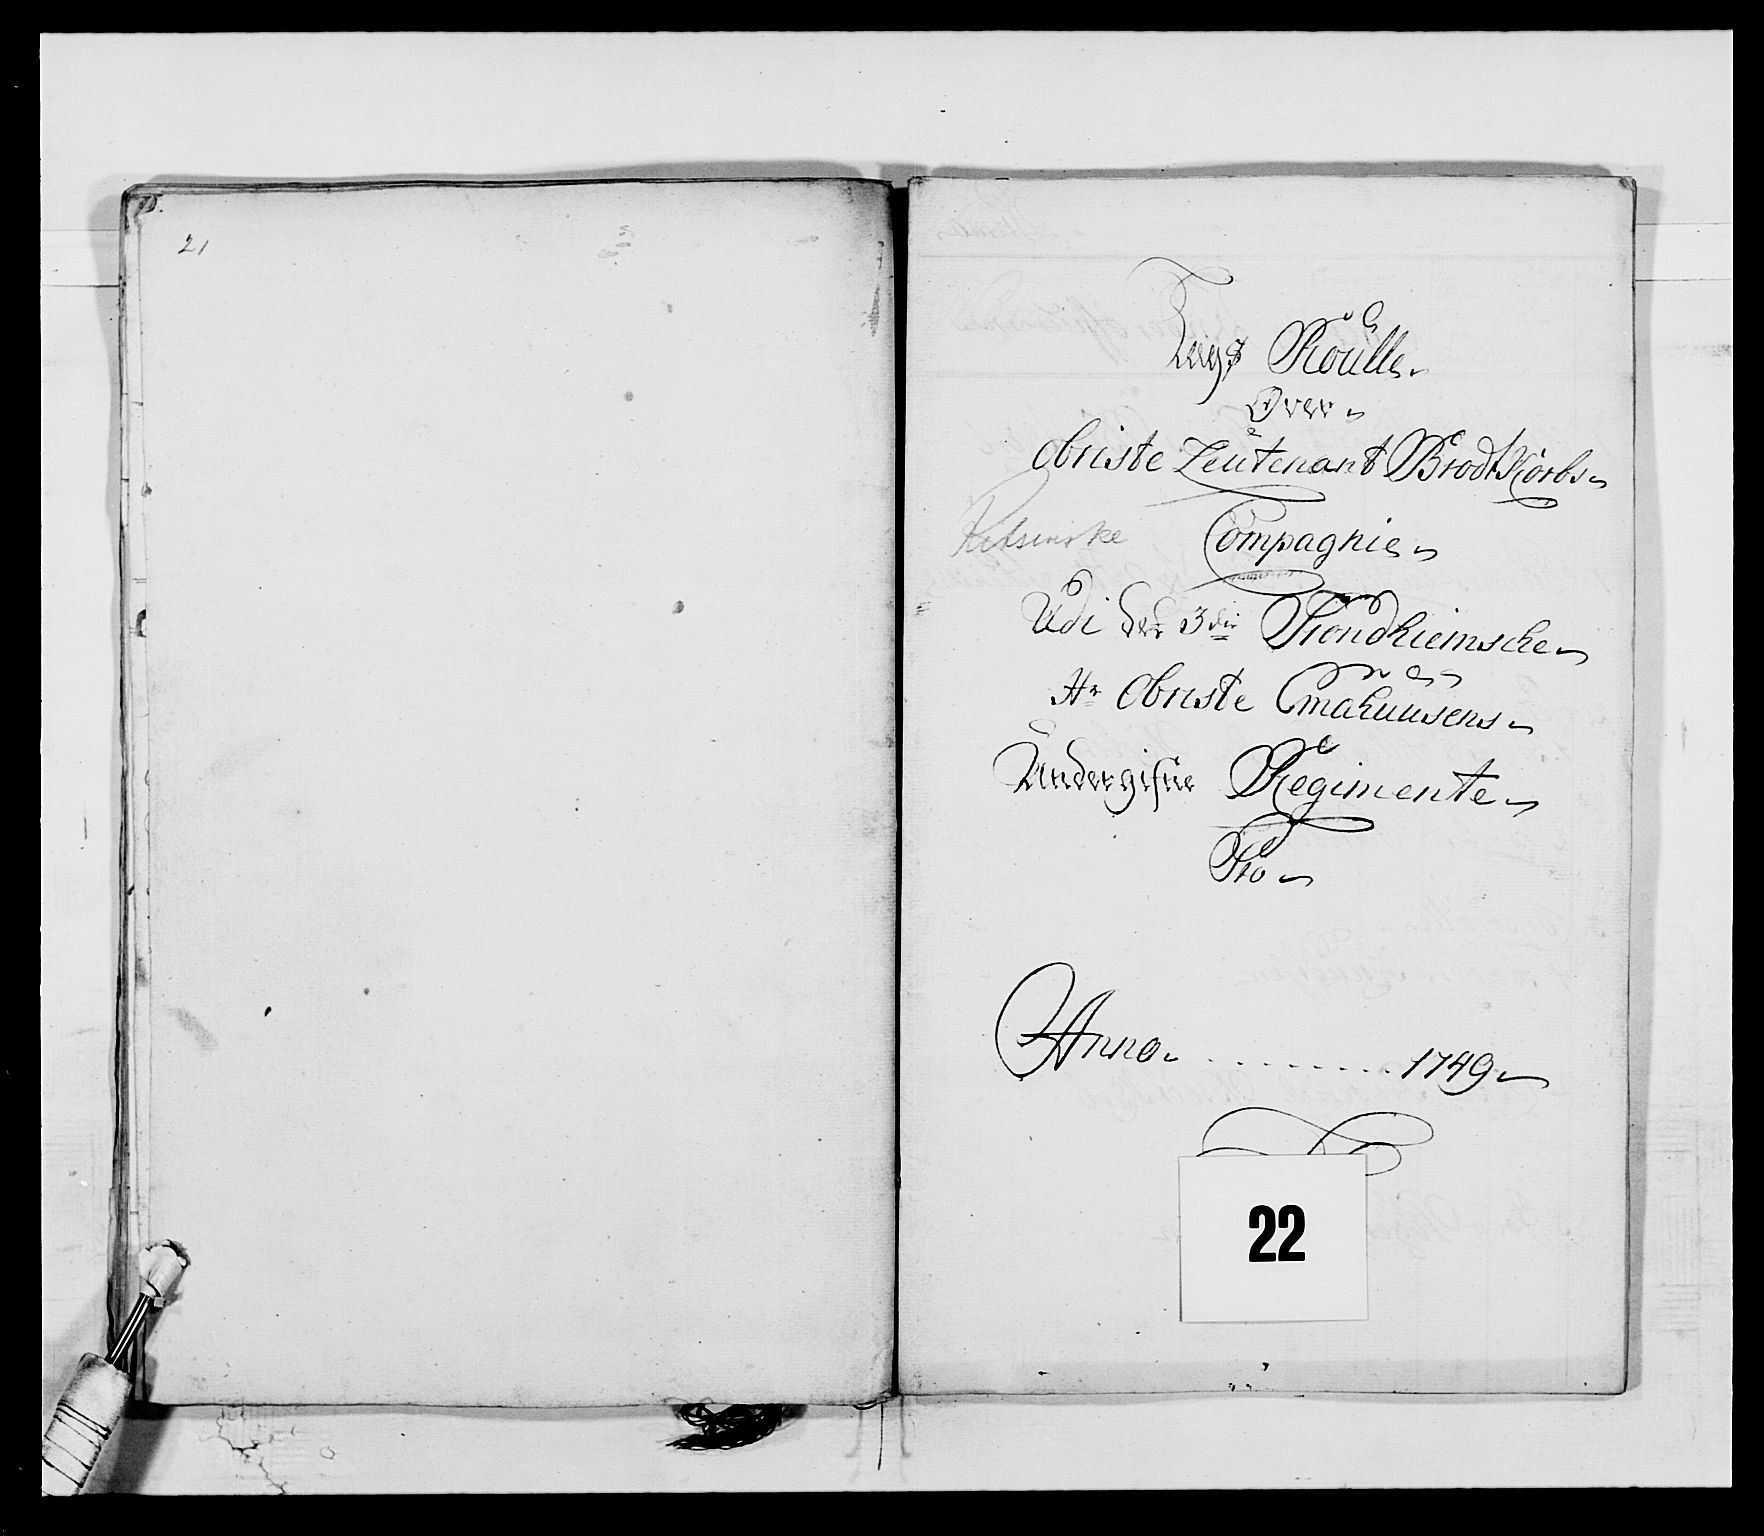 21
Lægs Roulle
Over
Obriste Leütenant BrodtKorbs
Compagnie
Udi det 3die Trondhiemsche
Hr Obriste Emahuusens
Undergifne Regimente
Pro
Anno . . . . . . . . 1749
22